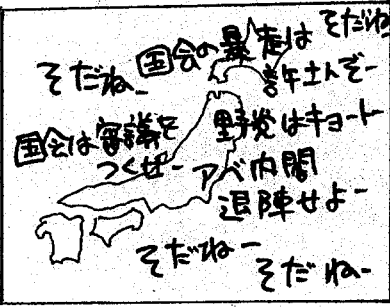 そだね
国会の暴走は
許せんぞー
そだね
国会は審議を
つくせー
野党はキョートー
アベ内閣
退陣せよー
そだねー
そだねー